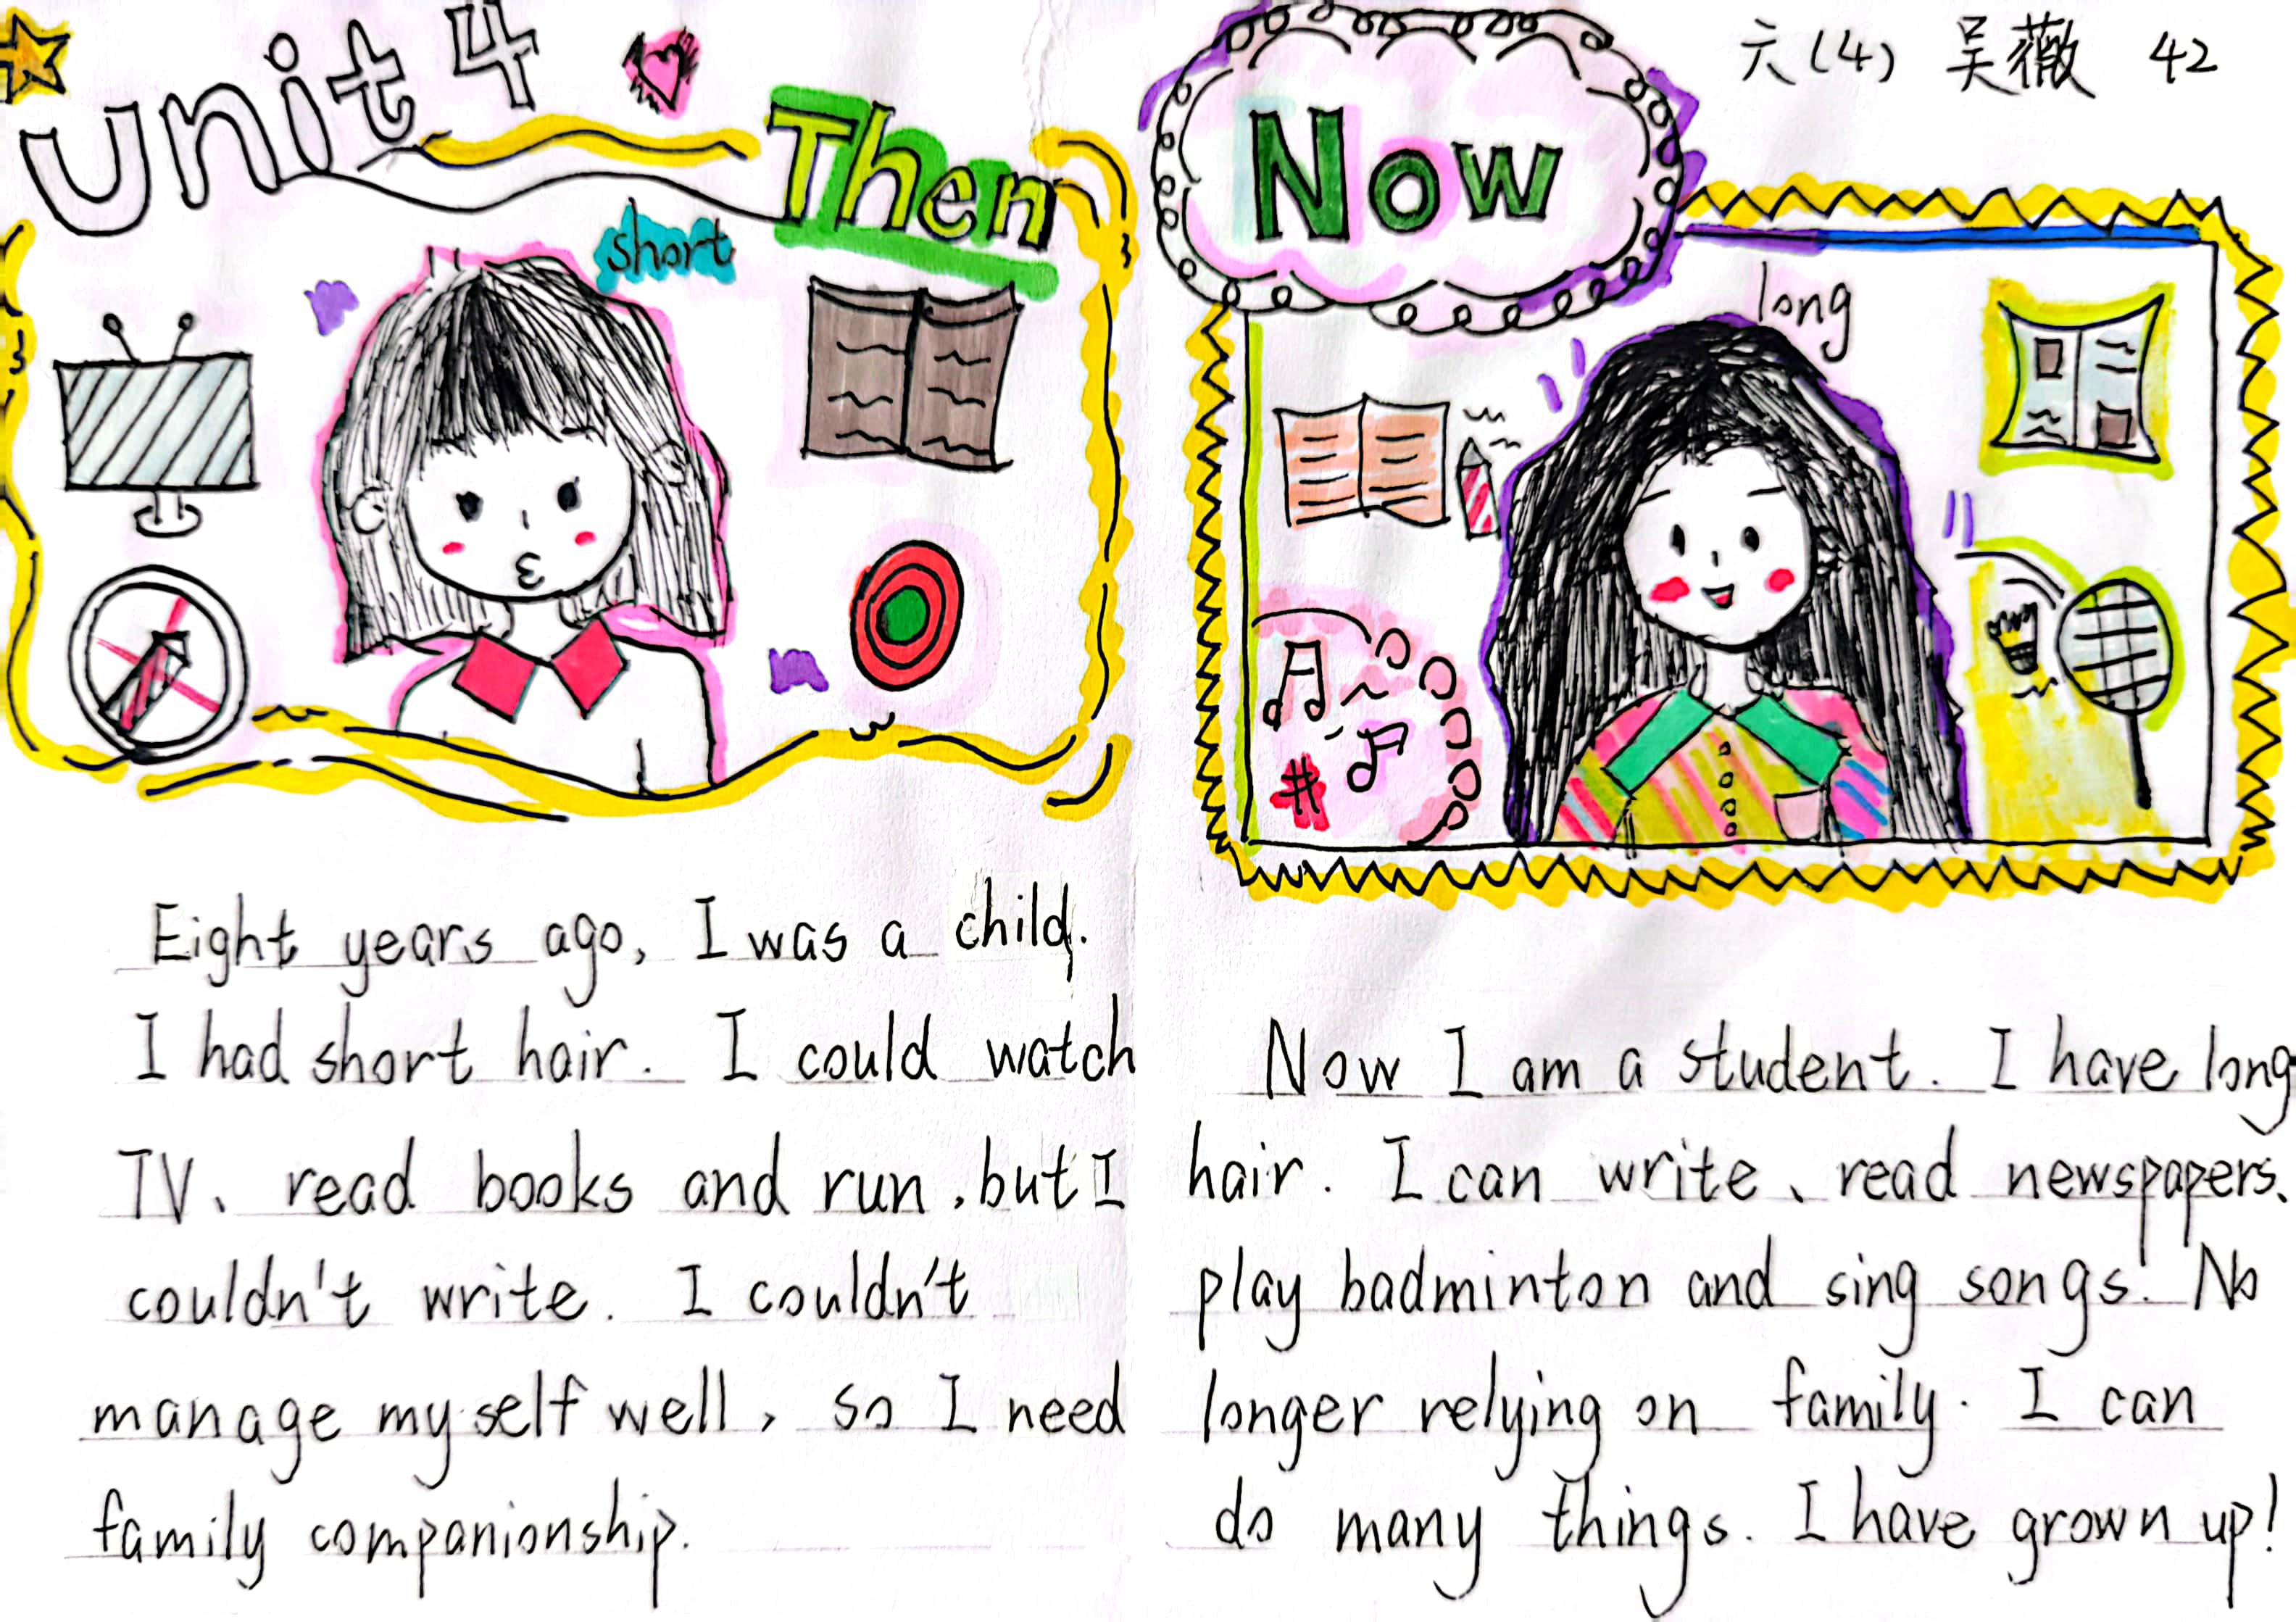 Unit 4
Then
short
Now
六(4) 吴薇 42
long
Eight years ago, I was a child.
I had short hair. I could watch
TV、read books and run, but I
couldn't write. I couldn't
manage myself well, so I need
family companionship.
Now I am a student. I have long
hair. I can write、read newspapers、
play badminton and sing songs. No
longer relying on family. I can
do many things. I have grown up!